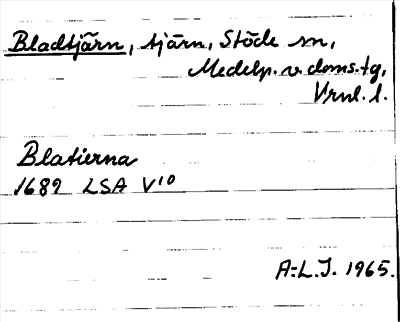 Bladtjärn, tjärn, Stöde sn,
Medelp. v. doms. tg,
Vrnl. l.
Blatierna
1689 LSA V¹⁰
A-L. J. 1965.